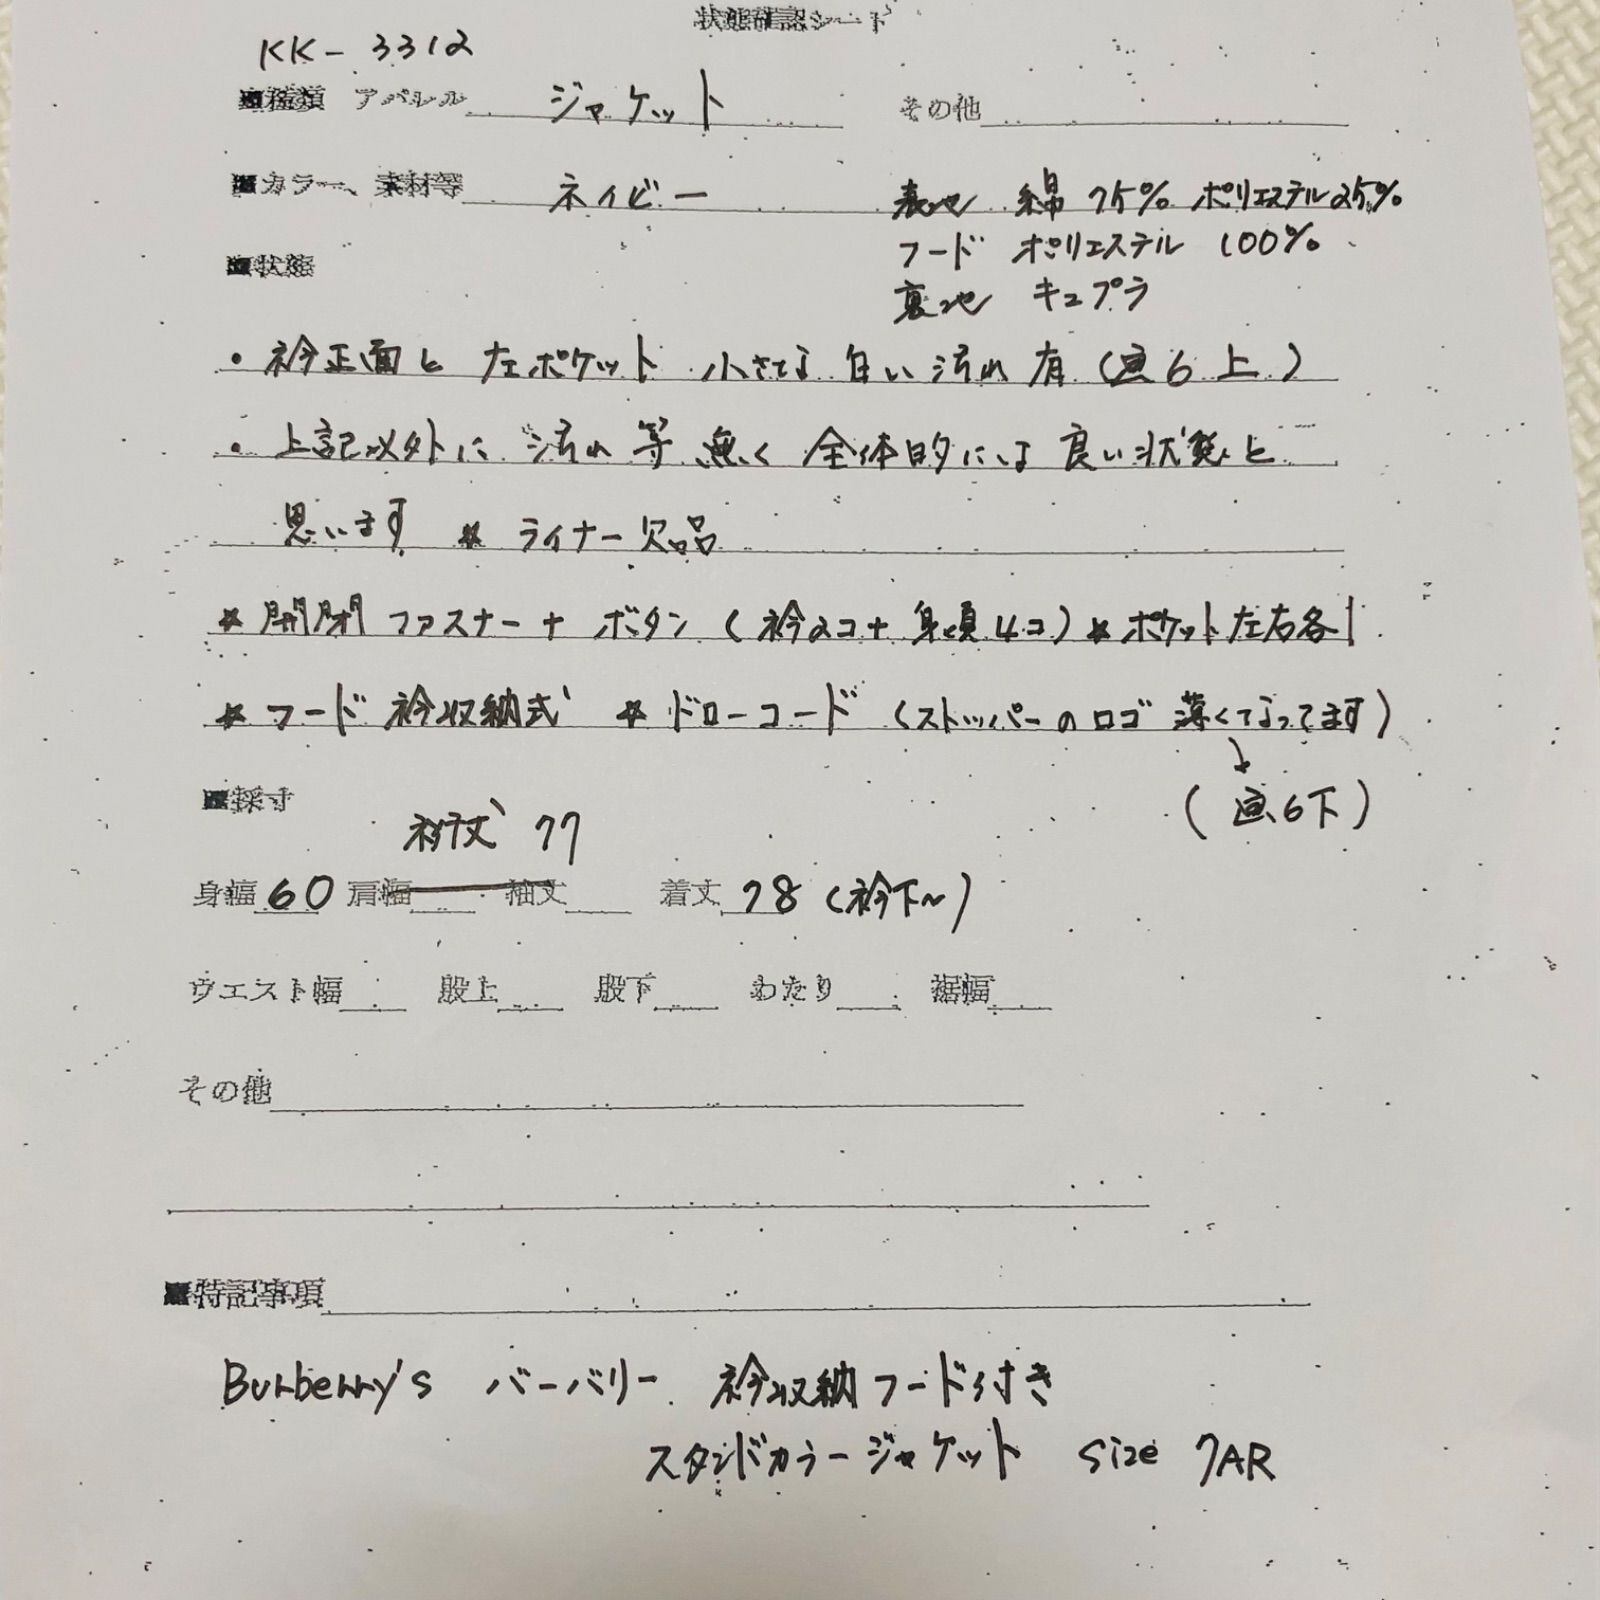 状態確認シート
KK-3312
■種類 アパレル ジャケット その他
■カラー、素材等 ネイビー 表地 綿 75% ポリエステル25%
フード ポリエステル 100%
■状態
裏地 キュプラ
・衿正面と左ポケット 小さな白い汚れ有(画6上)
・上記以外に汚れ等無く全体的には良い状態と
思います *ライナー欠品
*開閉ファスナー+ボタン(衿2コ+身頃4コ)*ポケット左右各1
*フード衿収納式 *ドローコード(ストッパーのロゴ薄くなってます)
↓
(画6下)
■採寸
裄丈 77
身幅 60 肩幅 袖丈 着丈 78(衿下~)
ウエスト幅 股上 股下 わたり 裾幅
その他
■特記事項
Burberry's バーバリー 衿収納フード付き
スタンドカラージャケット size 7AR